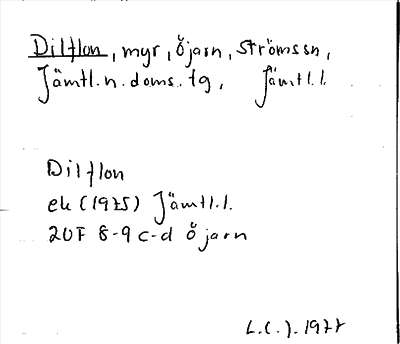 Dilflon, myr, Öjarn, Strömssn,
Jämtl.n.doms.tg, Jämtl.l.
Dilflon
ek (1975) Jämtl.l.
20F 8-9 c-d Öjarn
L.C.J. 1977